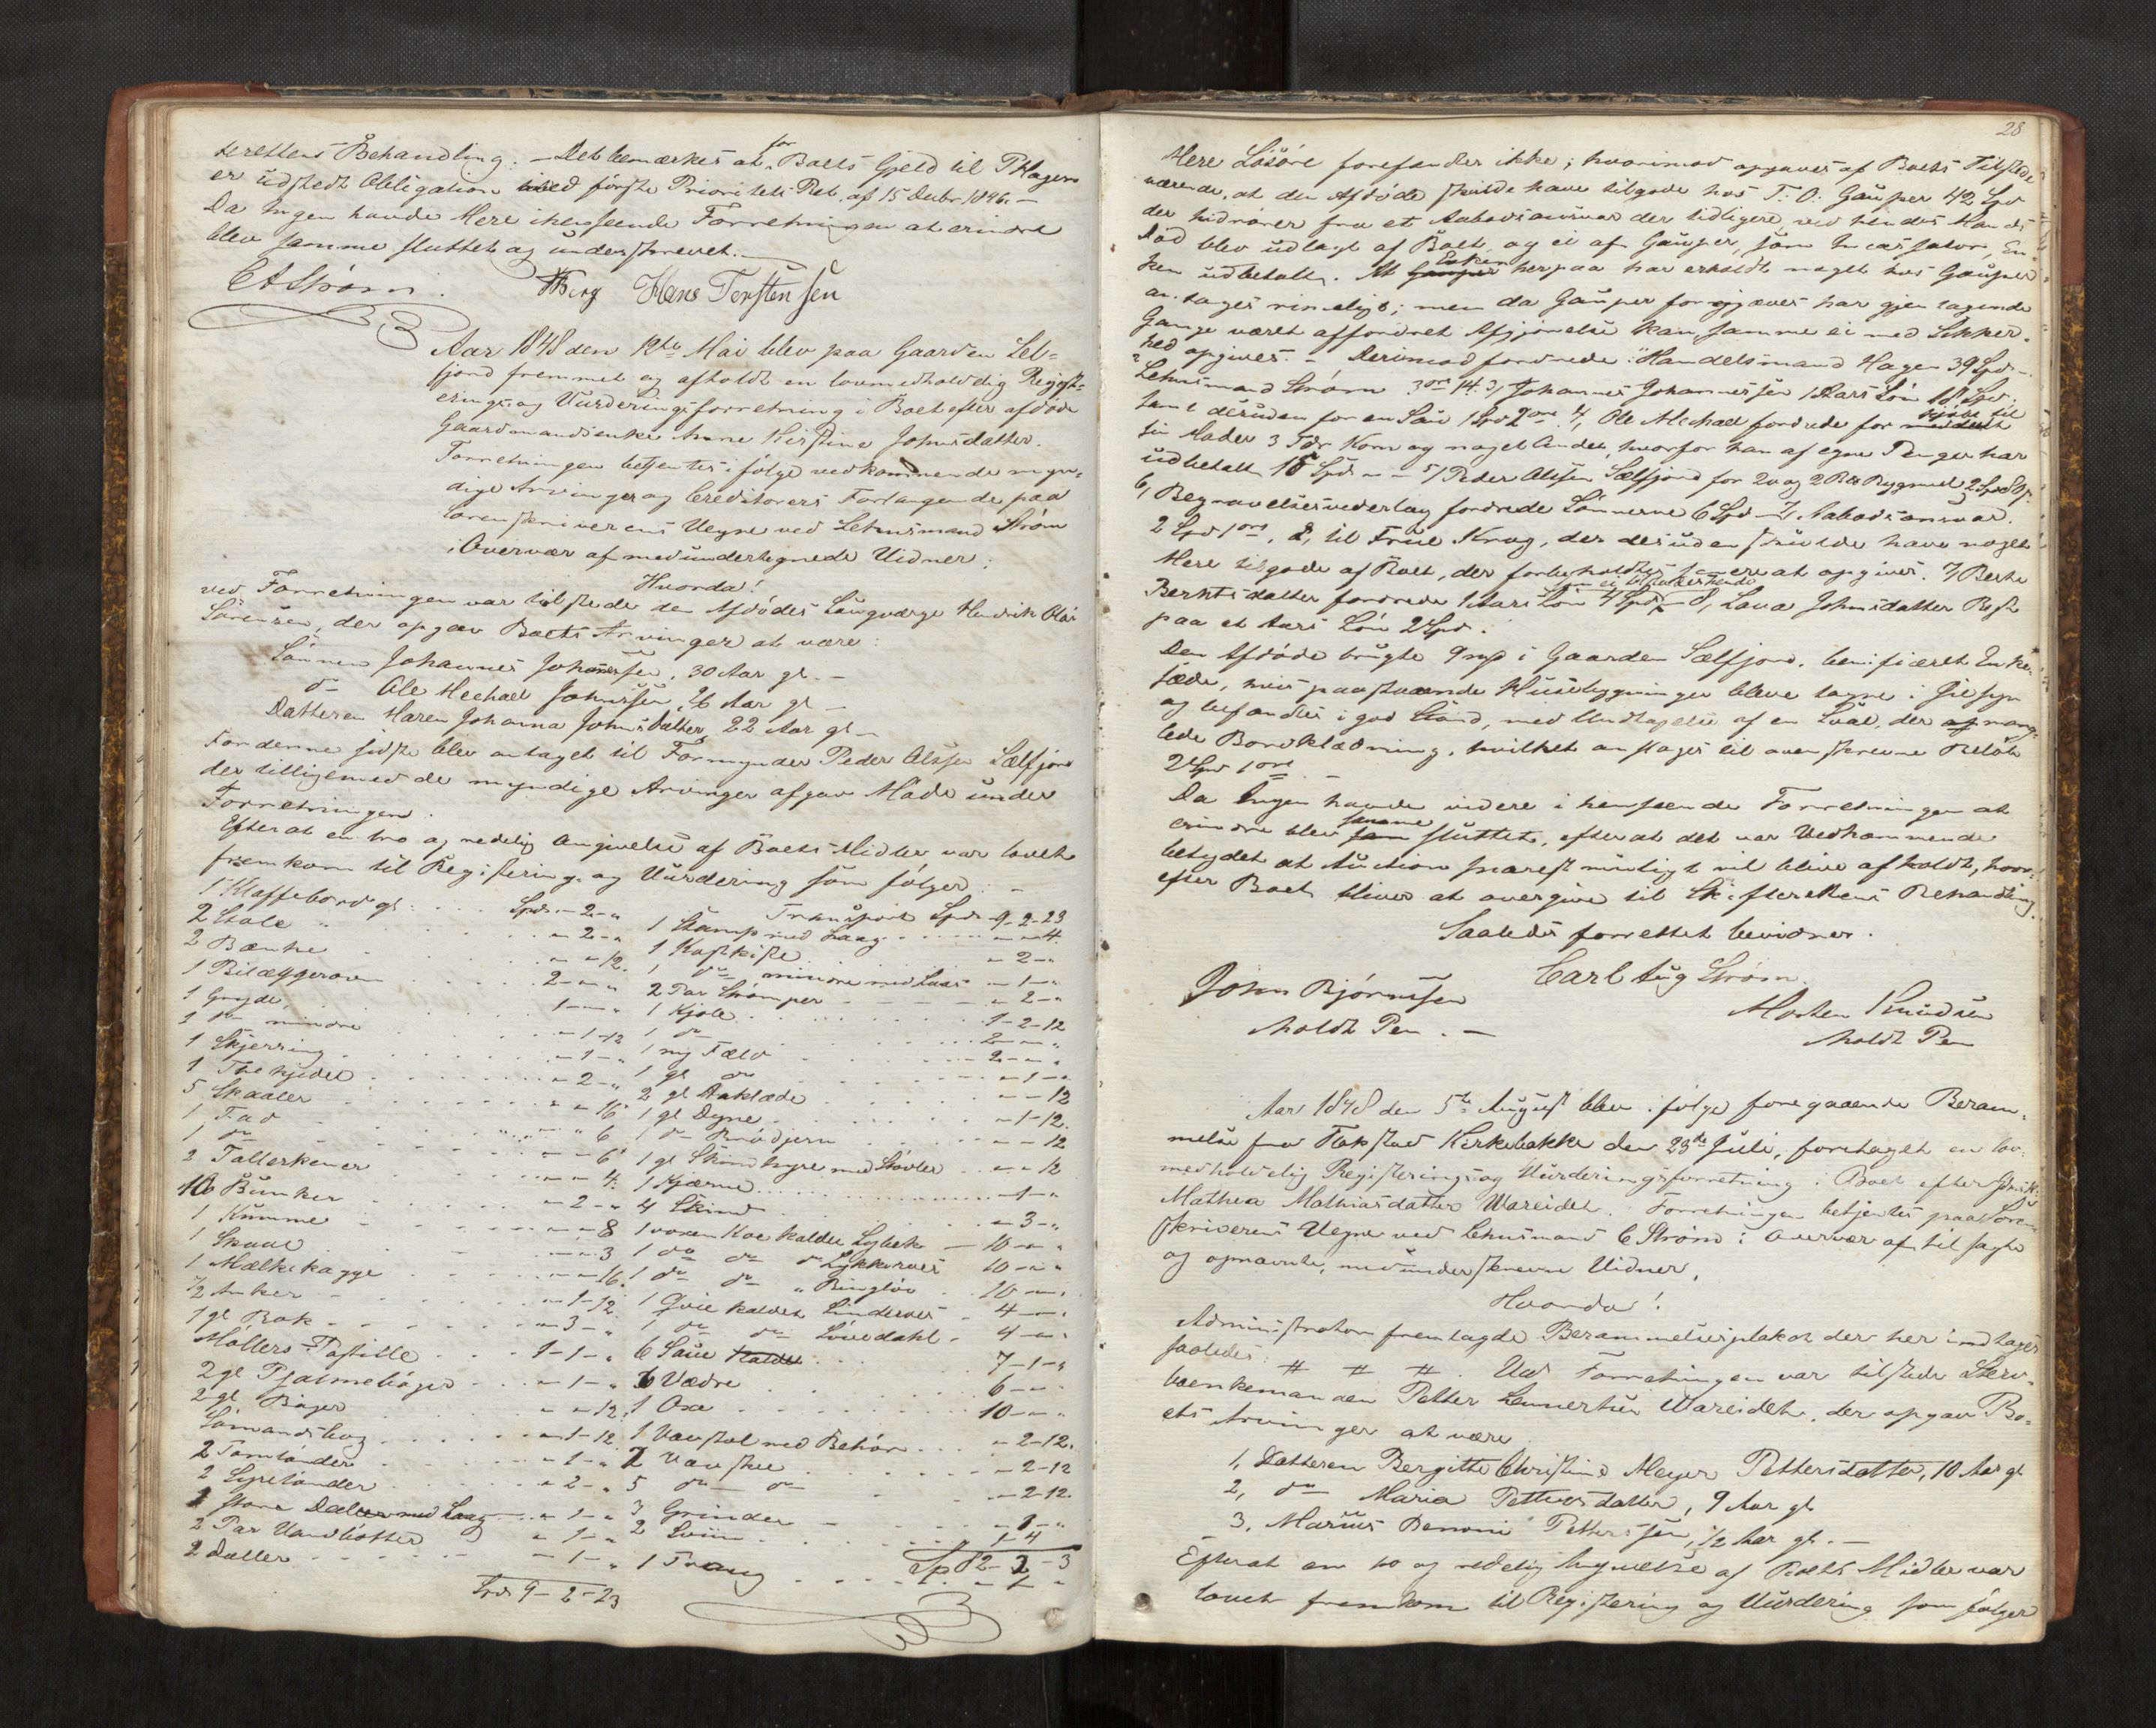 terettens Behandling. – Det bemærkes at for Boets Gjeld til P Hagen
er udstedt Obligation med første Prioritets Ret af 15 Decbr 1846. –
Da Ingen havde Mere i henseende Forretningen at erindre
blev samme sluttet og underskrevet. –
CAStrøm. Berg Hans Terstensen
Aar 1848 den 12te Mai blev paa Gaarden Sel-
fjord fremmet og afholdt en lovmedholdig Regist-
erings og Vurderingsforretning i Boet efter afdøde
Gaardmandsenke Anne Kirstine Johnsdatter.
Forretningen betjentes i følge vedkommende myn-
dige Arvinger og Creditorers Forlangende paa
Sorenskriverens Vegne ved Lehnsmand Strøm
i Overvær af medundertegnede Vidner;
Hvorda!
ved Forretningen var tilstede den Afdødes Laugværge Hendrik Olai
Sørensen, der opgav Boets Arvinger at være:
Sønnen Johannes Johannessen, 30 Aar gl. –
do Ole Mechael Johnssen, 26 Aar gl –
Datteren Maren Johanna Johnsdatter, 22 Aar gl –
For denne sidste blev antaget til Formynder Peder Olssen Sælfjord
der tilligemed de myndige Arvinger afgav Møde under
Forretningen.
Efter at en tro og redelig Angivelse af Boets Midler var lovet
fremkom til Registering og Vurdering som følger: –
1 Klaffebord gl. Spd. – 2 – "
2 Stole " – 2 – "
2 Bænke " " 12.
1 Bilæggerovn 2 – " "
1 Gryde 1 – " "
1 do mindre " – 1 – 12
1 Skjerring " – 1 – "
1 Thekjedel " – 2 – "
5 Skaaler " " 16
1 Fad " " 6
1 do " – 6
2 Tallerkener " " 4.
10 Bunker " – 2 – "
1 Kumme " – 8
1 Skaal " – 3
1 Mælkekagge " – 16.
1/2 Anker " – 1 – 12
1 gl Rok " – 3 – "
Møllers Postille 1 – 1 – "
2 gl Psalmebøger " – 1 – "
2 gl Bøger " " 12.
Sømandsbog " – 1 – 12
2 Tomtønder " – 1 – "
2 Lysetønder " – 2 – "
1 større Dalle med Laag " – 1 – "
2 Par Vandbøtter " – 1 – "
2 Daller " – 1 – "
Spd. 9 – 2 – 23
Transport Spd – 9 – 2 – 23
1 Stamp med Laag " – " – 4.
1 Kastkiste " – 2 – "
1 do mindre med Laas " – 1 – "
2 Par Strømper " – 2 – "
1 Kjole 1 – 2 – 12
1 do 2 – " – "
1 ny Fæld 2 – " – "
1 gl do " – 1 – "
2 gl Aaklæde " – " – 12
1 gl Dyne " – 1 – 12.
1 do Brødjern " – " – 12
1 gl Skindhyre med Støvler " – " 12
1 Kjærne " – 1 – "
4 Skind " – 3 – "
1 voxen Koe kaldet Lybek – 10 – " "
1 do do do Lykkeroes 10 – " "
1 do do " Ringløv 10 – " "
1 Qvie kaldet Linderoes – 4 – " "
1 do do Løvedahl – 4 – " "
6 Saue kaldet 7 – 1 – "
6 Vædre 6 – " "
1 Oxe 10 – " "
1 Vævstol med Behør " – 2 – 12.
2 Vævskee " – 2 – 12
5 do – do " – 2 – 12.
3 Grinder " – 1 – "
2 Sviin 1 – 4
1 Traug " – 1 – "
Sp 82 – 2 – 3
28
Mere Løsøre forefandtes ikke; hvorimod opgaves af Boets Tilstede
værende, at den Afdøde skulde have tilgode hos T: O: Gauper 42 Spd
der hidrører fra et Aabodsansvar der tidligere ved hendes Mands
Død blev udlagt af Boet, og ei af Gauper, som Incassator, En-
ken udbetalt. At Gauper Enken herpaa har erholdt noget hos Gauper
antages rimeligt; men da Gauper forgjæves har gjentagende
Gange været affordret Afgjørelse kan samme ei med Sikker-
hed opgives. – Derimod fordrede: Handelsmand Hagen 39 Spd. –
2 Lehnsmand Strøm 3 ort 14 s. 3, Johannes Johannessen 1 Aars Løn 18 Spd.
samt desuden for en Sau 1 Spd 2 ort 4, Ole Mechael fordrede for medbragt kjøbt til
sin Moder 3 Tdr Korn og noget Andet, hvorfor han af egne Penge har
udbetalt 18 Spd " " 5, Peder Olssen Sælfjord for 2 og 2 B Rugmel 2 Spd
6, Begravelsesvederlag fordrede Sønnerne 6 Spd – 7, Aabodsansvar.
2 Spd 1 ort, 8, til Frue Krog, der desuden skulde have noget
Mere tilgode af Boet, der forbeholdtes senere at opgives. 7, Berte
Berntsdatter fordrede 1 Aars Løn 4 Spd – 8, Lava Johnsdatter Rest
paa et Aars Løn 2 Spd.
Den Afdøde brugte 9 mp i Gaarden Sælfjord, benificeret Enke
sæde, hvis paastaaende Huusbygninger bleve tagne i Øiesyn
og befandtes i god Stand, med Undtagelse af en Sval, der af mang-
lede Bordklædning, hvilket ansloges til ovenskrevne Beløb
2 Spd 1 ort –
Da Ingen havde videre i henseende Forretningen at
erindre blev som samme sluttet, efter at det var Vedkommende
betydet at Auction snarest muligt vil blive afholdt, hvor-
efter Boet bliver at overgive til Skifterettens Behandling.
Saaledes forrettet bevidner.
Carl Aug Strøm.
John Bjørnssen Morten Knudsen
holdt Pen. – holdt Pen
Aar 1848 den 5te August blev i følge foregaaende Beram-
melse fra Flakstad Kirkebakke den 23de Juli, foretaget en lov-
medholdelig Registerings og Vurderingsforretning i Boet efter
Mathea Mathiasdatter Wareidet. Forretningen betjentes paa Soren-
skriverens Vegne ved Lehnsmand C Strøm i Overvær af tilsagte
og opnævnte, medunderskrevne Vidner,
Hvorda!
Administrator fremlagde Berammelsesplakat der her indtages
saaledes: # # #. Ved Forretningen var tilstede Sterv-
boenkemanden Petter Lennertsen Wareidet, der opgav Bo-
ets Arvinger at være
1, Datteren Bergitte Christine Meyer Pettersdatter, 10 Aar gl
2, do Maria Pettersdatter, 9 Aar gl
3, Marius Benoni Petterssen, 1/2 Aar gl. –
Efter at en tro og redelig Angivelse af Boets Midler var
lovet fremkom til Registering og Vurdering som følger